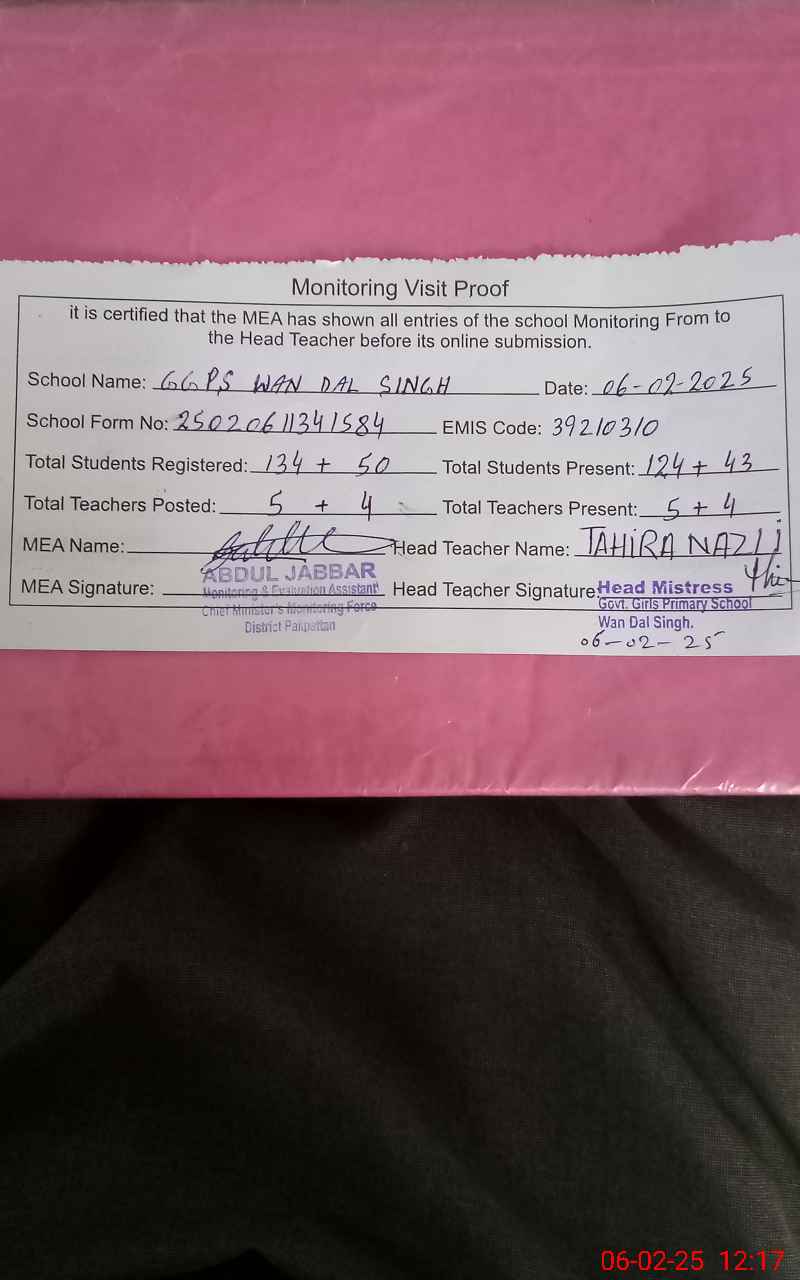 Monitoring Visit Proof
it is certified that the MEA has shown all entries of the school Monitoring From to
the Head Teacher before its online submission.
School Name: GGPS WAN DAL SINGH Date: 06-02-2025
School Form No: 25020611341584 EMIS Code: 39210310
Total Students Registered: 134 + 50 Total Students Present: 124 + 43
Total Teachers Posted: 5 + 4 Total Teachers Present: 5 + 4
MEA Name: Head Teacher Name: TAHIRA NAZLI
MEA Signature: Head Teacher Signature:
ABDUL JABBAR
Monitoring & Evaluation Assistant
Chief Minister's Monitoring Force
District Pakpattan
Head Mistress
Govt. Girls Primary School
Wan Dal Singh.
06-02-25
06-02-25 12:17